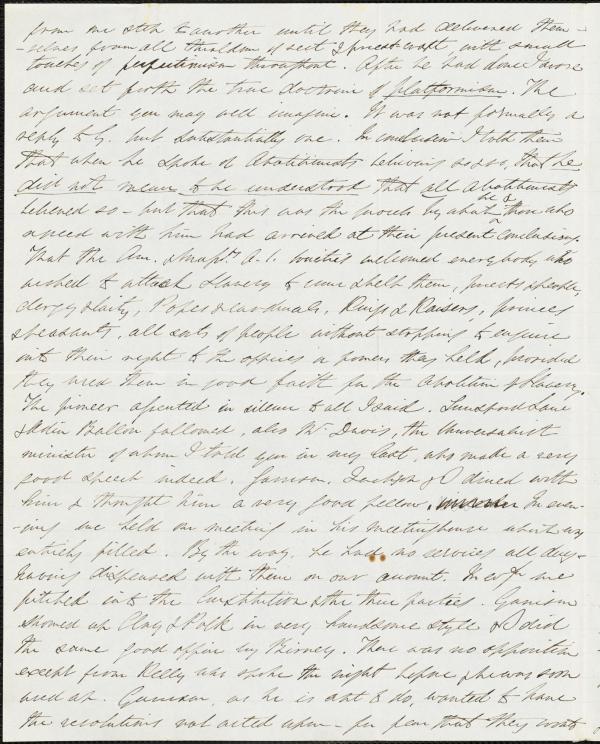 from one step to another until they had delivered them-
-selves from all thraldom of sect & priest craft, with small
touches of perfectionism throughout. After he had done I arose
and set forth the true doctrine of platformism. The
argument you may well imagine. It was not formally a
reply to G. but substantially one. In conclusion I told them
that when he spoke of Abolitionists believing so & so, that he
did not mean to be understood that all Abolitionists
believed so – but that this was the process by which he & those who
agreed with him had arrived at their present conclusions.
That the Am. & Mass. A. S. Societies welcomed everybody who
wished to attack Slavery to come & help them, priests & people,
clergy & laity, Popes & Cardinals, Kings & Kaisers, princes
& peasants, all sorts of people without stopping to enquire
into their right to the offices or powers they held, provided
they used them in good faith for the Abolition of Slavery.
The pioneer assented in silence to all I said. Lunsford Lane
& Adin Ballou followed, also Mr. Davis, the Universalist
minister of whom I told you in my last, who made a very
good speech indeed. Garrison, Jackson & I dined with
him & thought him a very good fellow. In even-
-ing we held our meeting in his meetinghouse which was
entirely filled. By the way, he had no services all day
having dispensed with them on our account. In evg we
pitched into the Constitution & the three parties. Garrison
showed up Clay & Polk in very handsome style & I did
the same good office by Birney. There was no opposition
except from Kelly who spoke the night before & he was soon
used up. Garrison, as he is apt to do, wanted to have
the resolutions not acted upon – for fear that they would